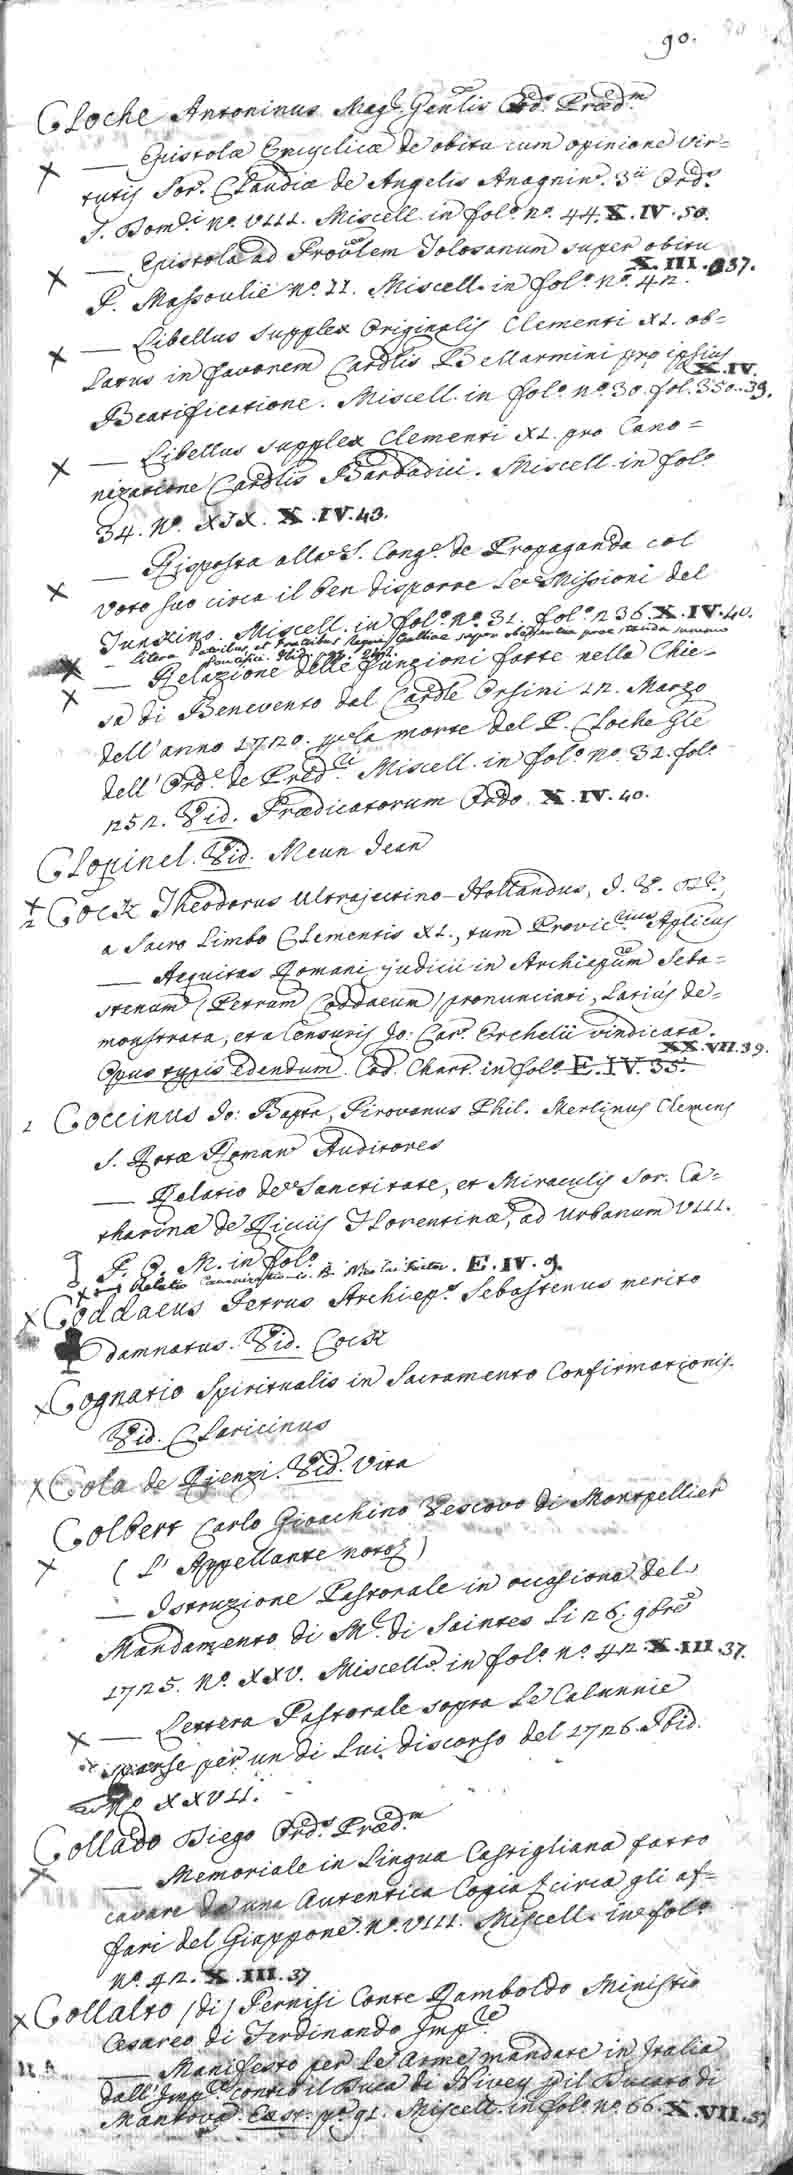 90.
Cloche Antoninus Mag.r Gen̄lis Ord.s Præd.m
— Epistola Encyclica de obitu cum opinione vir=
tutis Sor. Claudiæ de Angelis Anagnin. 3ii Ord.s
S. Dom.ci N.o VIII. Miscell. in fol.o n.o 44. X.IV.50.
— Epistola ad Prov̄lem Tolosanum super obitu
P. Massoulié N.o II. Miscell. in fol.o n.o 42. X.III.37.
— Libellus supplex Originalis Clementi XI. ob=
latus in favorem Cardlis Bellarmini pro ipsius
Beatificatione. Miscell. in fol.o n.o 30. fol. 350. X.IV.39.
— Libellus supplex Clementi XI. pro Cano=
nizatione Cardlis Barbadici. Miscell. in fol.o
34. N.o XIX. X.IV.43.
— Risposta alla S. Cong.e de Propaganda col
voto suo circa il ben disporre le Missioni del
Tunkino. Miscell. in fol.o n.o 31. fol.o 236. X.IV.40.
— Litera Patribus, et Fratribus Regni Galliae super obedientia prae standa summo
Pontifici. Ibid. pag.
— Relazione delle funzioni fatte nella Chie=
sa di Benevento dal Cardle Orsini 12. Marzo
dell' anno 1720. p̱ la morte del P. Cloche Gle
dell' Ord.e de Pred.ri Miscell. in fol.o n.o 31. fol.o
252. Vid. Prædicatorum Ordo. X.IV.40.
Clopinel. Vid. Meun Jean
Cock Theodorus Ultrajectino-Hollandus, J. V.
a Sacro Limbo Clementis XI., tum Provic.rius Aplicus
— Aequitas Romani judicii in Archiep̄um Seba=
stenum (Petrum Coddaeum) pronunciati, latius de=
monstrata, et a Censuris Jo: Car. Erchelii vindicata.
Opus typis edendum. Cod. Chart. in fol.o E.IV.35. XX.VII.39.
1 Coccinus Jo: Bapta, Pirovanus Phil. Merlinus Clemens
S. Rotæ Roman Auditores
— Relatio de Sanctitate, et Miraculis Sor. Ca=
tharinæ de Ricciis Florentinæ, ad Urbanum VIII.
P. O. M. in fol.o
— Relatio Canonizatio E.IV.9.
Coddaeus Petrus Archiep.s Sebastenus merito
damnatus. Vid. Cock
Cognatio Spiritualis in Sacramento Confirmationis.
Vid. Claricinus
Cola de Rienzi. Vid. Vita
Colbert Carlo Gioachino Vescovo di Montpellier
(l' Appellante noto)
— Istruzione Pastorale in occasione del
Mandamento di M.r di Saintes li 26. 9bre
1725. N.o XXV. Miscell. in fol.o n.o 42. X.III.37.
— Lettera Pastorale sopra le Calunnie
sparse per un di lui discorso del 1726. Ibid.
N.o XXVII.
Collado Diego Ord.s Præd.m
— Memoriale in Lingua Castigliana fatto
cavare da una Autentica Copia circa gli af=
fari del Giappone. N.o VIII. Miscell. in fol.o
n.o 42. X.III.37
Collalto (di) Pernisi Conte Ramboldo Ministro
Cesareo di Ferdinando Imp.re
— Manifesto per le Arme mandate in Italia
dall' Imp.re contro il Duca di Nivers p̱ il Ducato di
Mantova. Ext. p.o 91. Miscell. in fol.o n.o 66. X.VII.